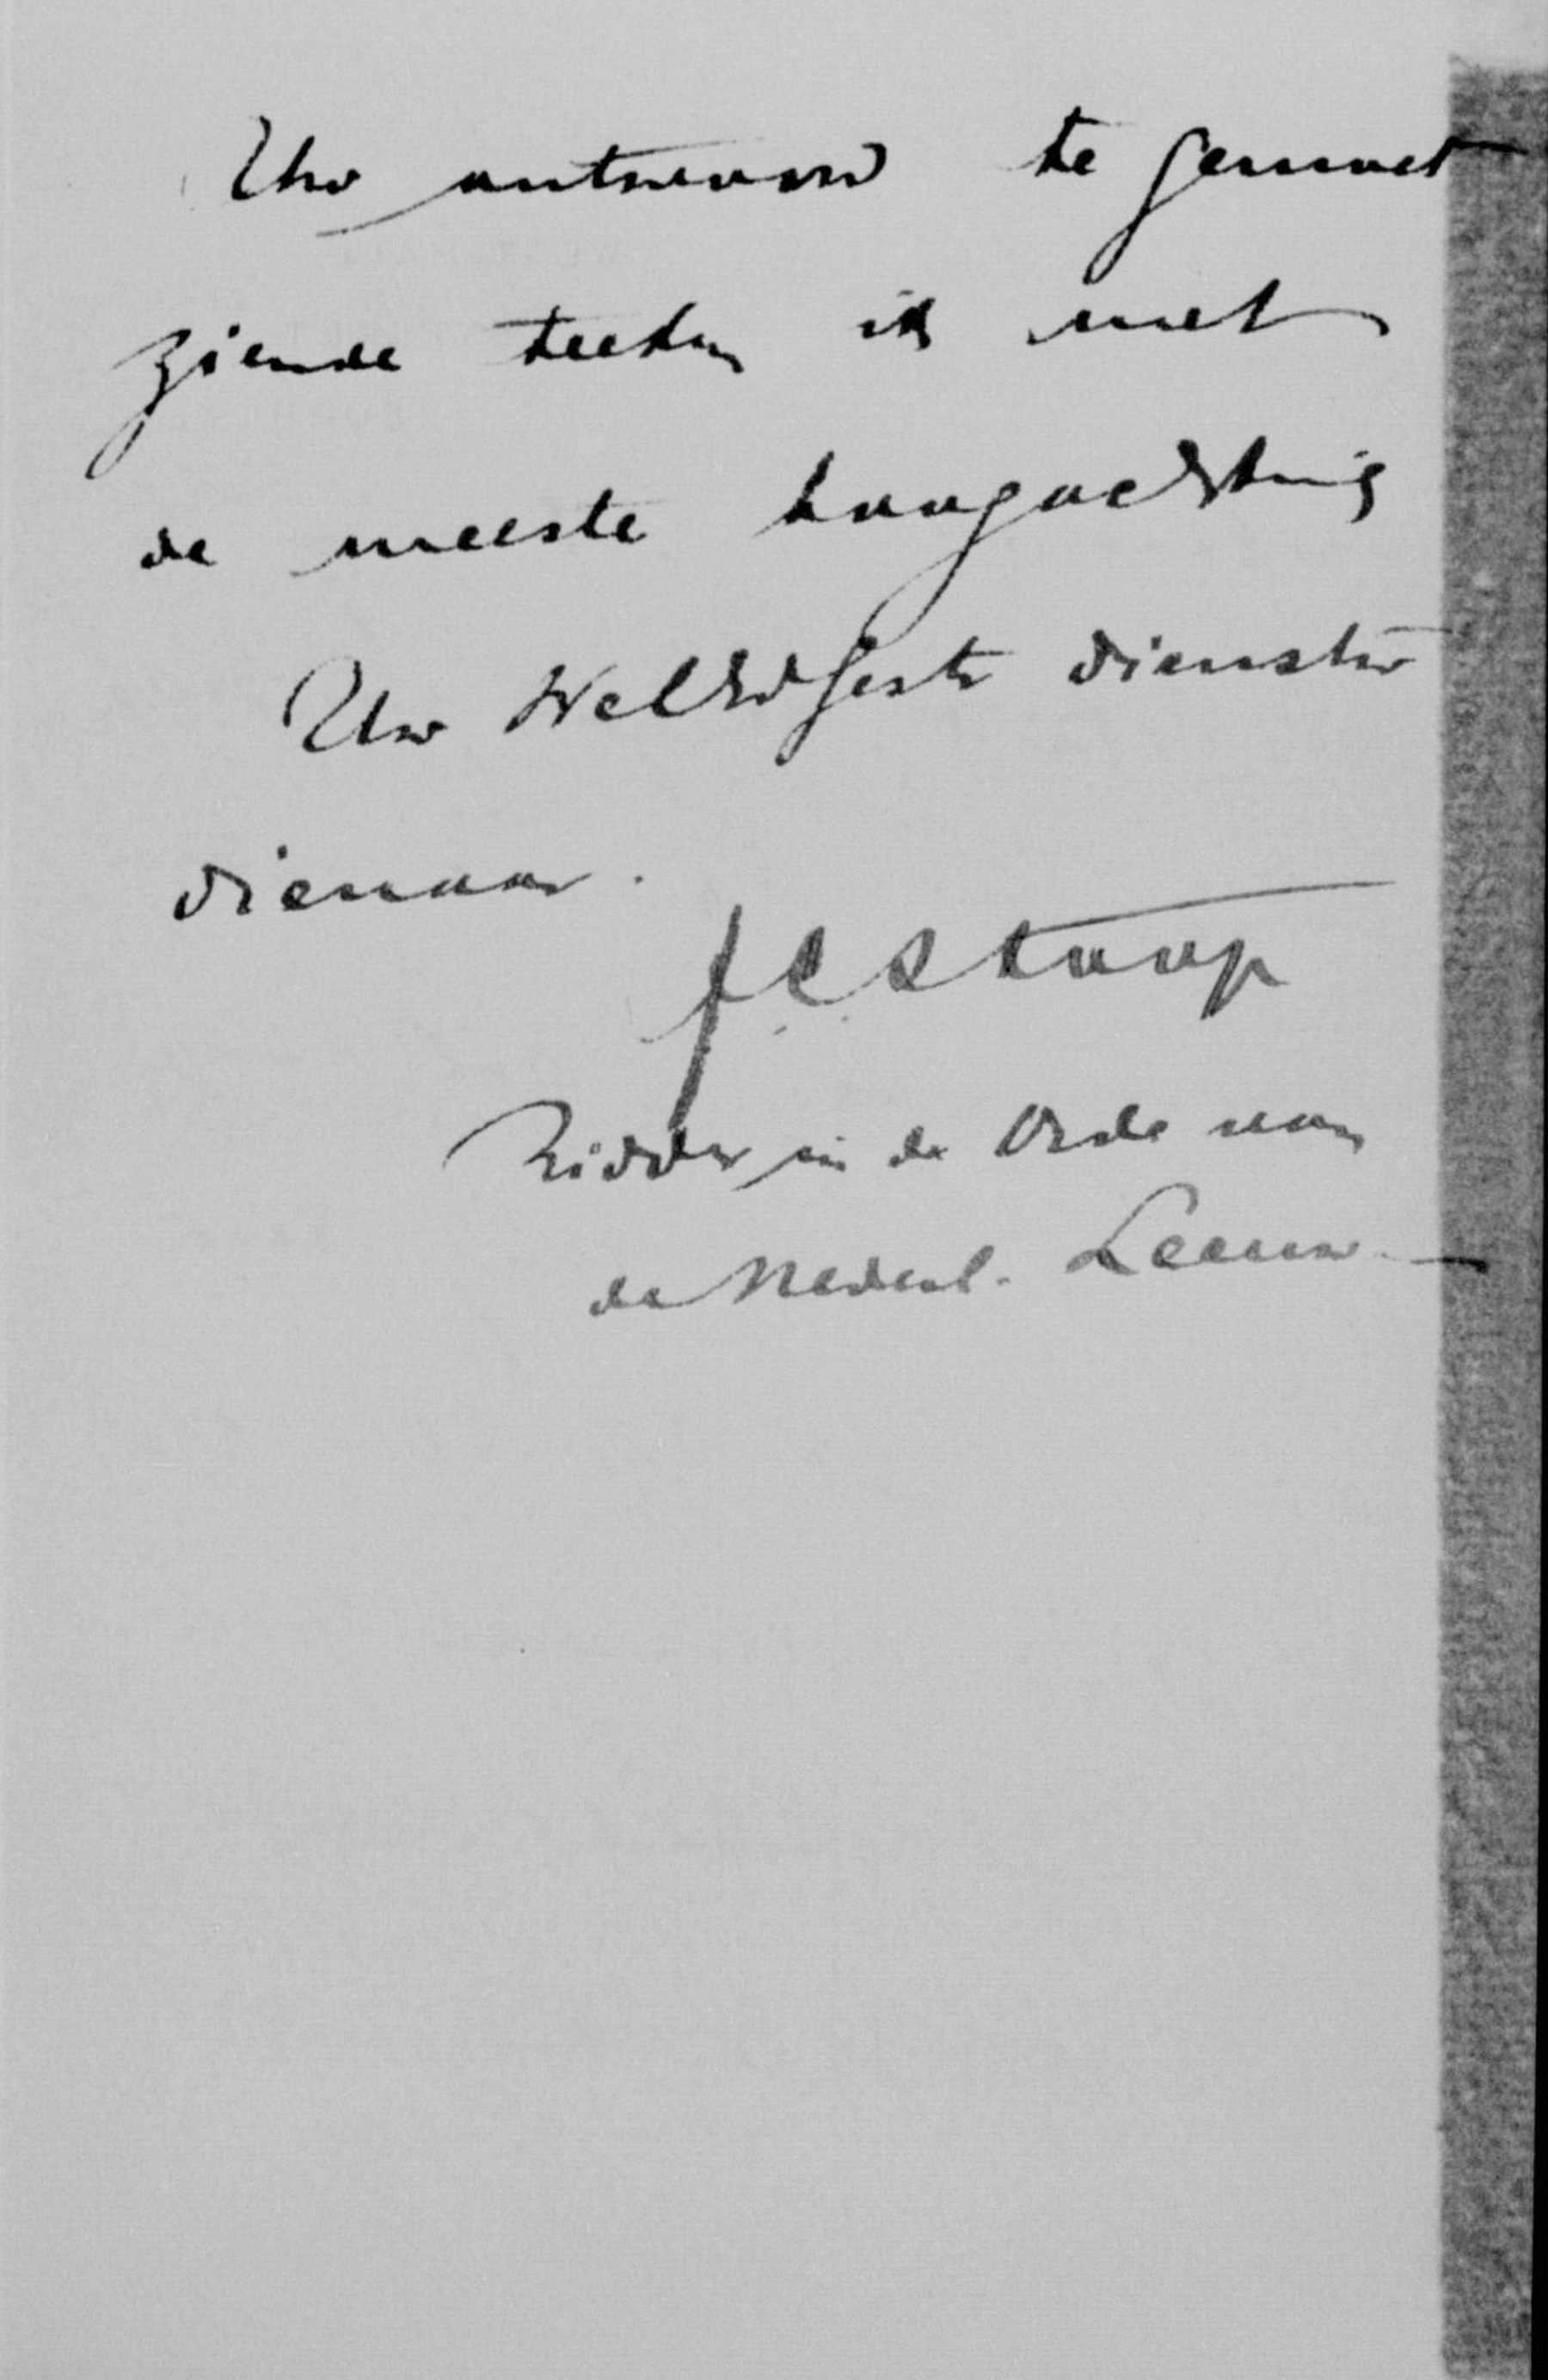 Uw antwoord te gemoet
ziende teeken ik met
de meeste hoogachting
Uw WelEdGestr dienstw
dienaar.
FCStoop
Ridder in de Orde van
de Nederl. Leeuw